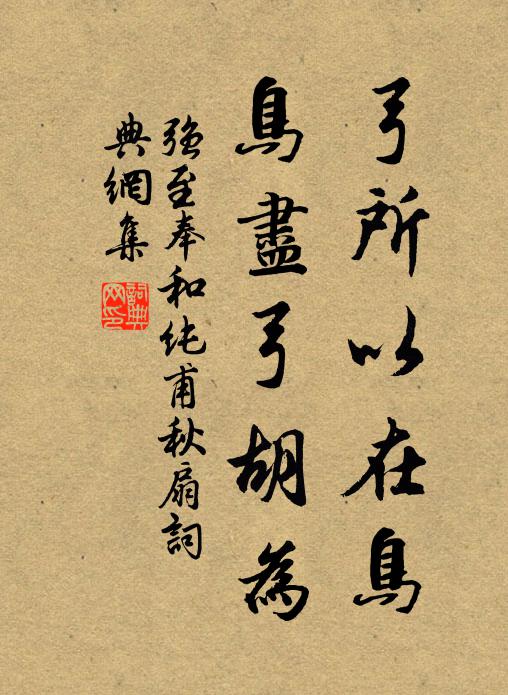 弓所以在鳥
鳥盡弓胡為
強至奉和純甫秋扇詞
典網集
詞典網印